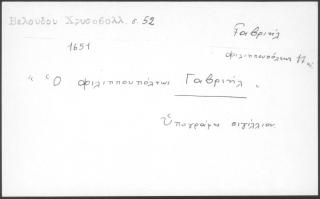 Βελουδου Χρυσοβουλλ. σ. 52
Γαβριήλ
φιλιππουπόλεως 11
1651
" Ὁ φιλιππουπόλεως Γαβριήλ "
Ὑπογράφει σιγίλλιον